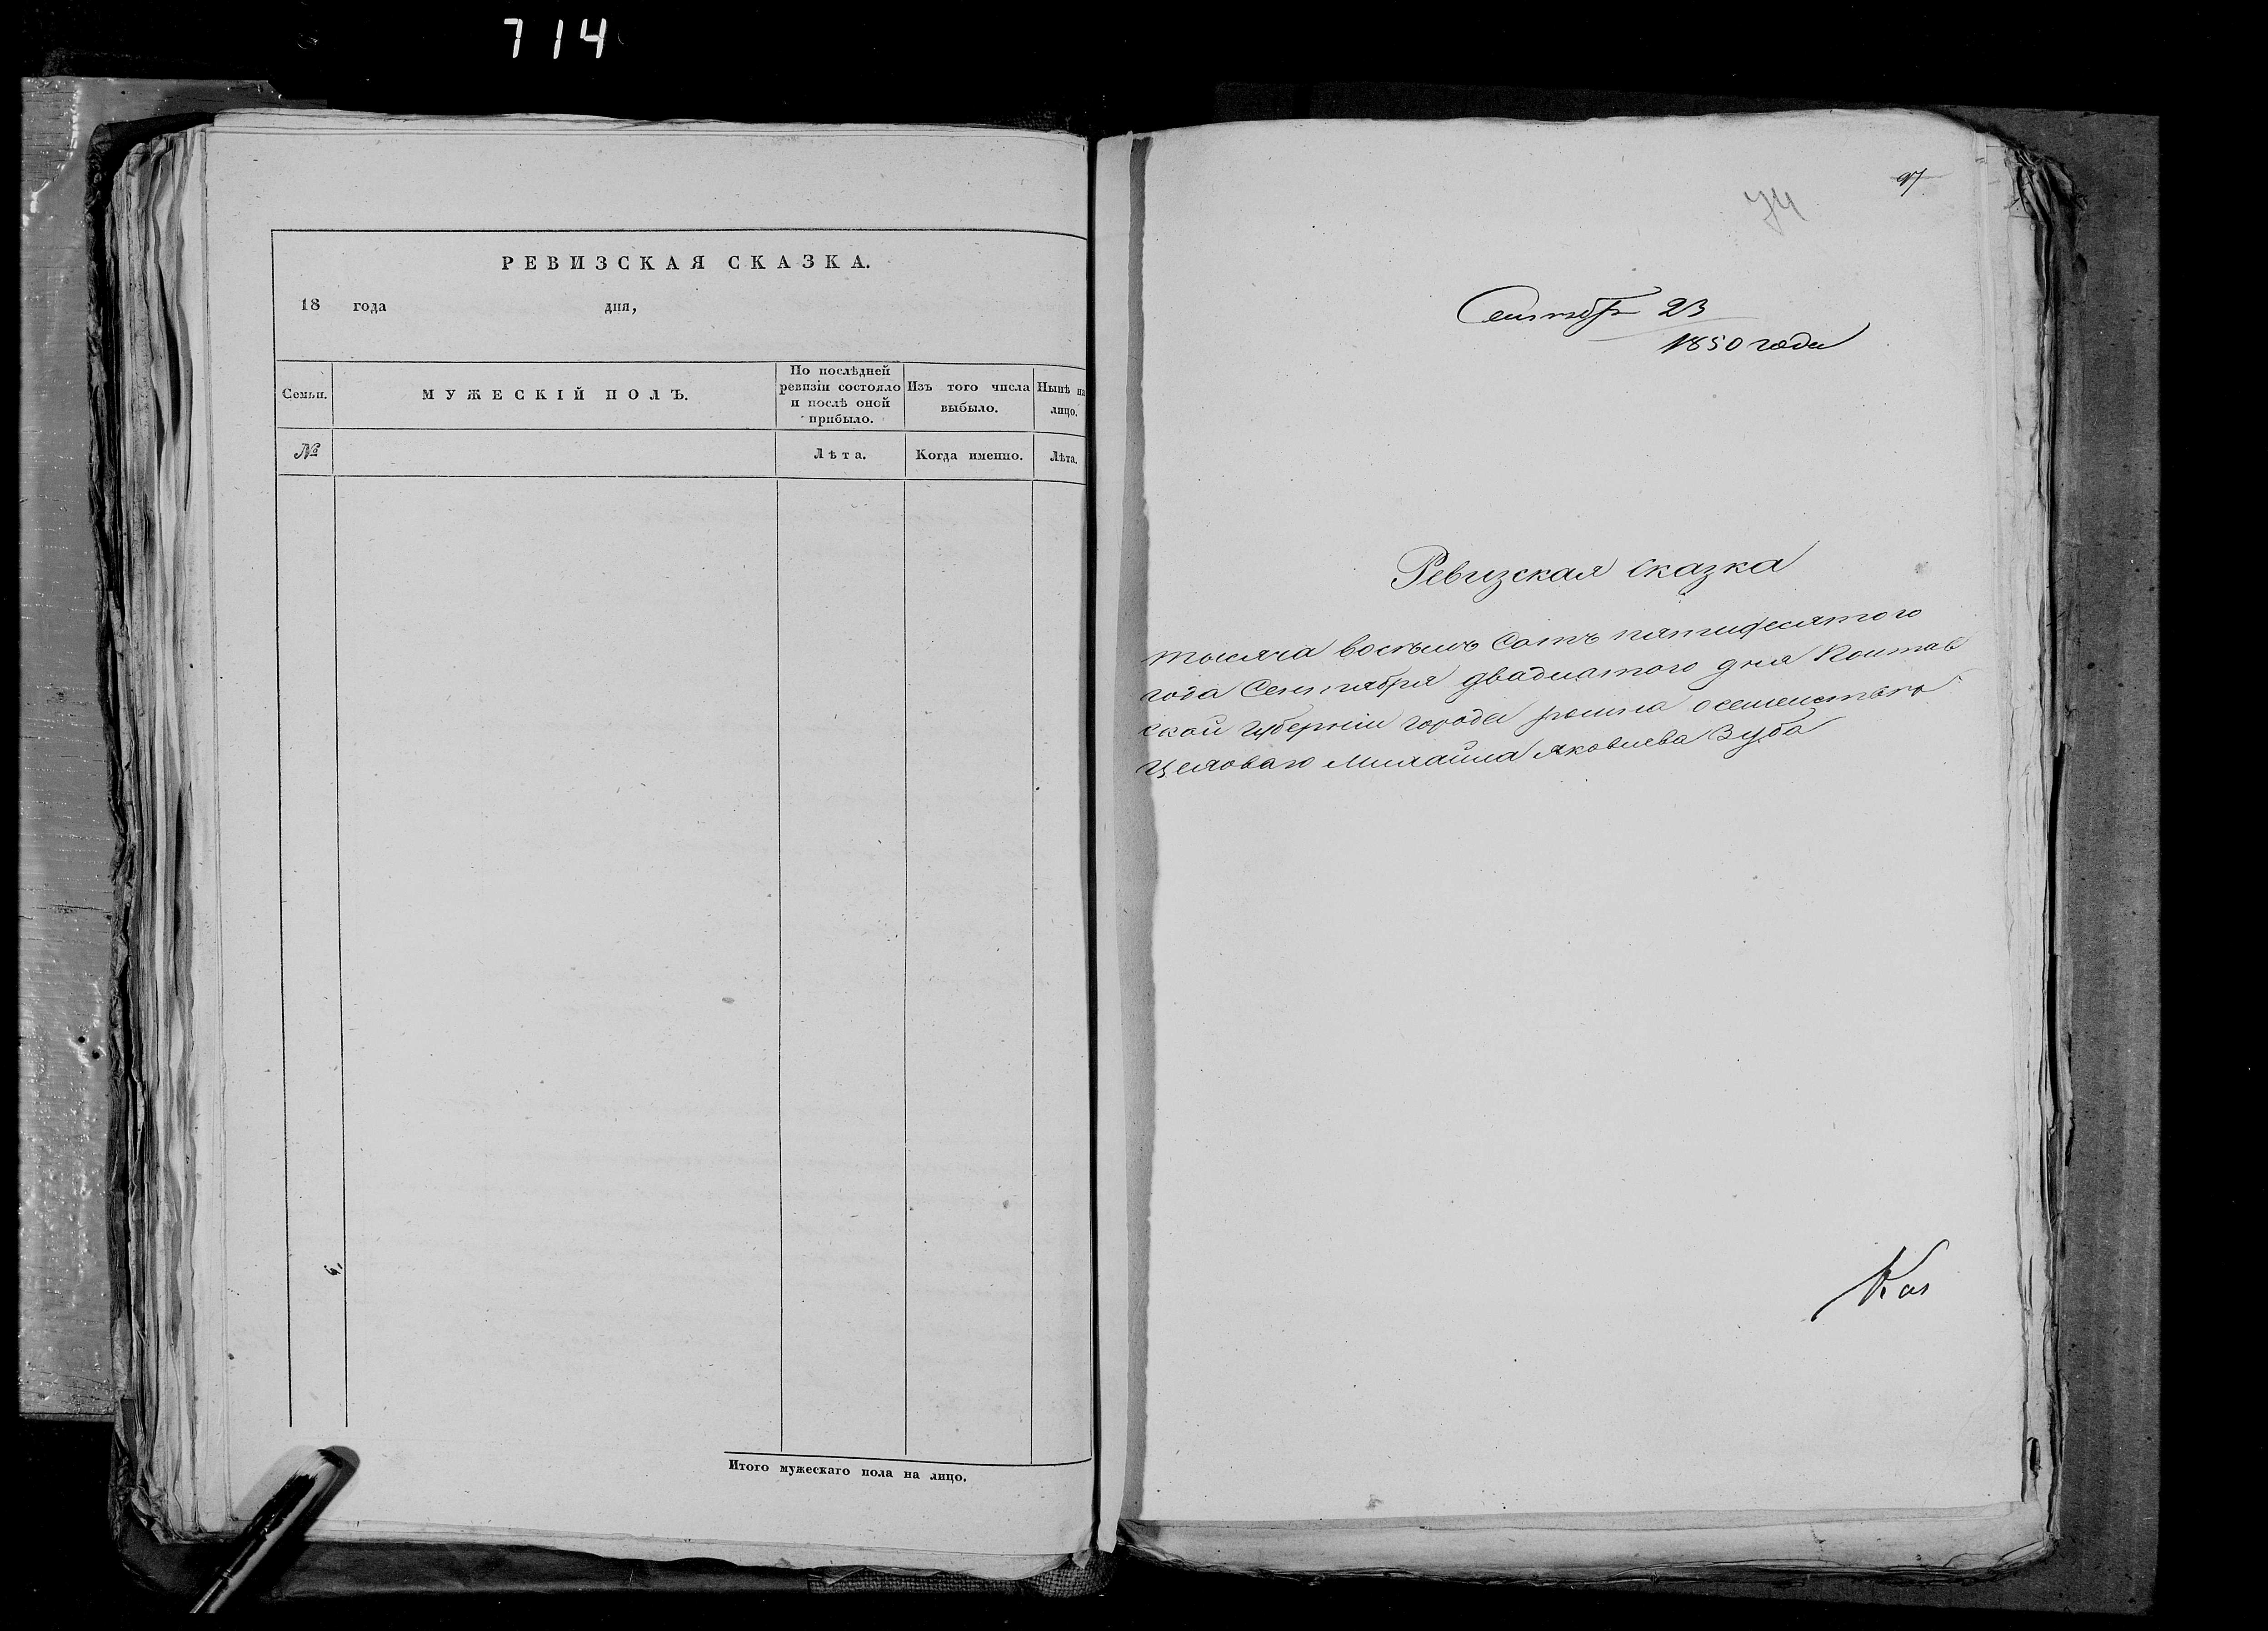 714
РЕВИЗСКАЯ СКАЗКА.
18 года дня,
Семьи.
МУЖЕСКІЙ ПОЛЪ.
По послѣдней ревизіи состояло и послѣ оной прибыло.
Изъ того числа выбыло.
Нынѣ на лицо.
№
Лѣта.
Когда именно.
Лѣта.
Итого мужескаго пола на лицо.
97
74
Сентябр 23
1850 года
Ревизская сказка
тысяча восемь сотъ пятидесятого
года Сентября двадцатого дня Полтав
ской губерніи города
Михайла Яковлева Зуба